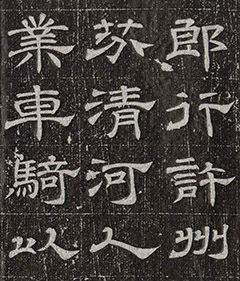 郎行許州
清河人
業車騎以